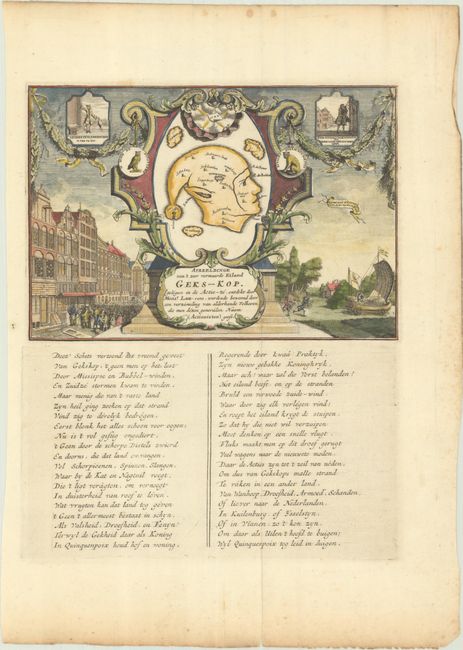 AFBEELDINGE
van't zeer vermaarde Eiland
GEKS-KOP.
geligen in de Actie-zé, ontdekt door
Monsr. Law-rens, werdende bewoond door
een verzameling van alderhande Volkeren
die men dezen generalen Naam
(Actionisten) geeft
Deez' Schets vertoond het vreemd gewest
Van Gekskop, 't geen men op het lest
Door Missisipse en Bubbel-winden,
En Zuidzé stormen kwam te vinden.
Maar menig die van 't vaste land
Zyn heil ging zoeken op dat strand
Vind zig te dérelyk bedrogen,
Eerst blonk het alles schoon voor oogen;
Nu is 't vol giftig ongediert
't Geen door de scherpe Distels zwierd
En doorns, die dat land ontvangen.
Vol Scorpioenen, Spinnen, Slangen,
Waar by de Kat en Nagtuil voegt,
Die 't ligt veragten, om vernoegt
In duisterheid van roof te leven.
Wat vrugten kan dat land tog geven
't Geen 't allermeest bestaat in schyn
Als Valsheid, Droefheid, en Fenyn?
Terwyl de Gekheid daar als Koning
In Quinquenpoix houd hof en woning.
Regerende door kwaâ Praktyk,
Zyn nieuw gebakke Koningkryk.
Maar och! waar zal die Vorst belanden?
Het eiland beeft, en op de stranden
Bruld een vervoede zuide-wind
Waar door zig elk verlégen vind,
En roept het eiland krygt de stuipen.
Zo dat hy die niet wil verzuipen
Moet denken op een snelle vlugt.
Fluks maakt men op dit droef gerugt
Veel wagens naar de nieuwste moden.
Daar de Actien zyn tot zeil van noden.
Om dus van Gekskops malle strand
Te raken in een ander land.
Van Wanhoop, Droefheid, Armoed, Schanden,
Of liever naar de Nederlanden.
In Kuilenburg of Ysselsteyn,
Of in Vianen, zo 't kon zyn,
Om daar als Uilen 't hoofd te buigen;
Wyl Quinquenpoix tog leid in duigen.